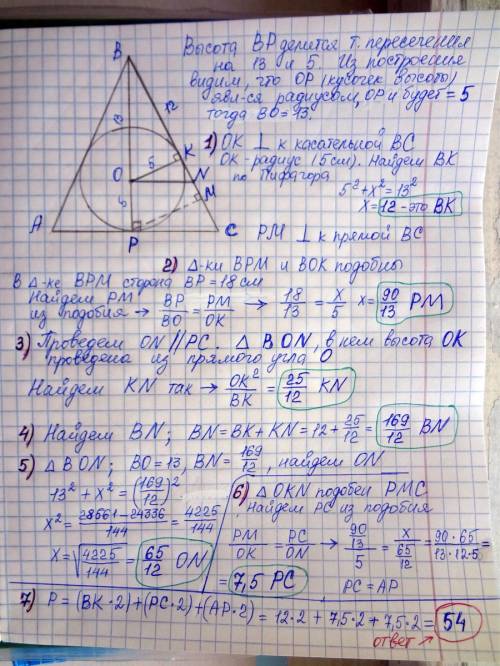 Высота BP делится т. пересечения
на 13 и 5. Из построения
видим, что OP (кусочек высоты)
явл-ся радиусом, OP и будет = 5
тогда BO = 13.
B
12
K
5
O
N
M
5
A
P
C
1) OK ⊥ к касательной BC
OK - радиус (5см). Найдем BK
по Пифагора
5² + x² = 13²
x = 12 - это BK
PM ⊥ к прямой BC
2) Δ-ки BPM и BOK подобны
В Δ-ке BPM сторона BP = 18 см
Найдем PM
из подобия → BP/BO = PM/OK → 18/13 = x/5 x = 90/13 PM
3) Проведем ON // PC. Δ BON, в нем высота OK
проведена из прямого угла O
Найдем KN так → OK²/BK = 25/12 KN
4) Найдем BN; BN = BK + KN = 12 + 25/12 = 169/12 BN
5) Δ BON; BO = 13, BN = 169/12, найдем ON
13² + x² = (169/12)²
x² = 28561 - 24336/144 = 4225/144
x = √4225/144 = 65/12 ON
6) Δ OKN подобен PMC
найдем PC из подобия
PM/OK = PC/ON → 90/13/5 = x/65/12 = 90·65/13·12·5 =
= 7,5 PC
PC = AP
7) P = (BK·2) + (PC·2) + (AP·2) = 12·2 + 7,5·2 + 7,5·2 = 54
ответ